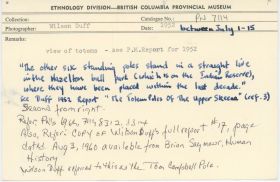 ETHNOLOGY DIVISION—BRITISH COLUMBIA PROVINCIAL MUSEUM
Collection
Catalogue No.: PN 7114
Photographer: Wilson Duff
Date: 1952
between July 1-15
Remarks:
view of totems - see P.M.Report for 1952
"The other six standing poles stand in a straight line
in the Hazelton ball park (which is on the Indian Reserve),
where they have been placed within the last decade."
See Duff 1952 Report "The Totem Poles of the Upper Skeena" (ref. 3)
Second from right.
Refer PN's
Also, Refer: Copy of Wilson Duff's full report #17, page
dated Aug 3, 1960 available from Brian Seymour, Human
History.
Wilson Duff referred to this as the Tom Campbell Pole.